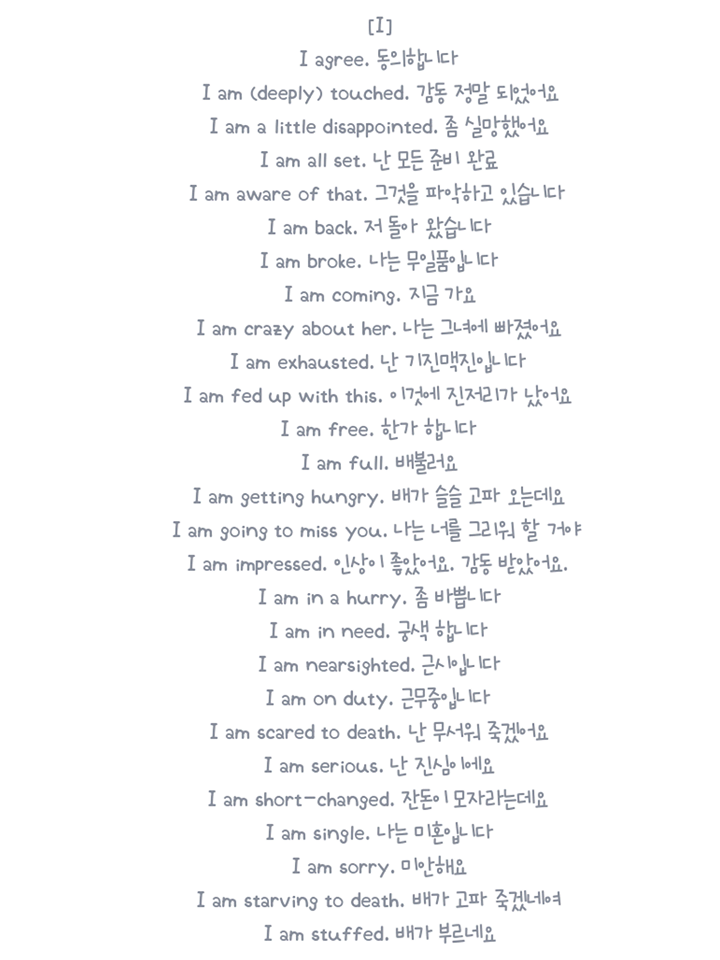 [I]
I agree. 동의합니다
I am (deeply) touched. 감동 정말 되었어요
I am a little disappointed. 좀 실망했어요
I am all set. 난 모든 준비 완료
I am aware of that. 그것을 파악하고 있습니다
I am back. 저 돌아 왔습니다
I am broke. 나는 무일품입니다
I am coming. 지금 가요
I am crazy about her. 나는 그녀에 빠졌어요
I am exhausted. 난 기진맥진입니다
I am fed up with this. 이것에 진저리가 났어요
I am free. 한가 합니다
I am full. 배불러요
I am getting hungry. 배가 슬슬 고파 오는데요
I am going to miss you. 나는 너를 그리워 할 거야
I am impressed. 인상이 좋았어요. 감동 받았어요.
I am in a hurry. 좀 바쁩니다
I am in need. 궁색 합니다
I am nearsighted. 근시입니다
I am on duty. 근무중입니다
I am scared to death. 난 무서워 죽겠어요
I am serious. 난 진심이에요
I am short-changed. 잔돈이 모자라는데요
I am single. 나는 미혼입니다
I am sorry. 미안해요
I am starving to death. 배가 고파 죽겠네여
I am stuffed. 배가 부르네요